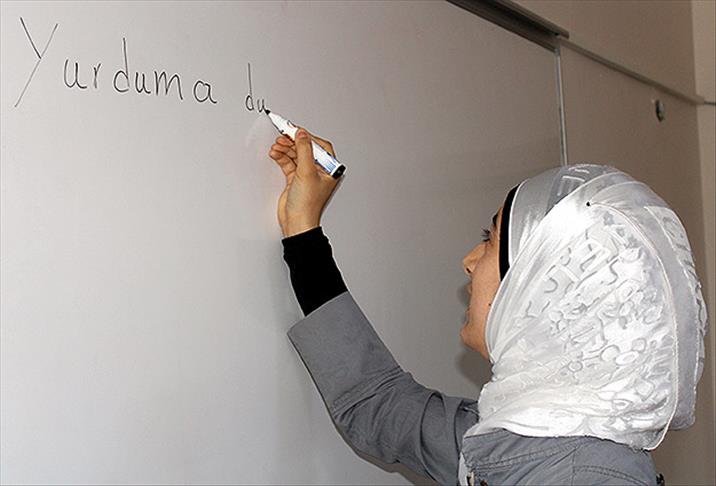 Yurduma du